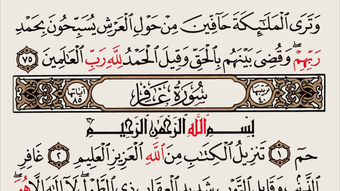 وَتَرَى الْمَلَٰٓئِكَةَ حَآفِّينَ مِنْ حَوْلِ الْعَرْشِ يُسَبِّحُونَ بِحَمْدِ
رَبِّهِمْ ۖ وَقُضِىَ بَيْنَهُم بِالْحَقِّ وَقِيلَ الْحَمْدُ لِلَّهِ رَبِّ الْعَٰلَمِينَ ٧٥
ترتيبها ٤٠ سُورَةُ غَافِرٍ آياتها ٨٥
بِسْمِ اللَّهِ الرَّحْمَٰنِ الرَّحِيمِ
حمٓ ١ تَنزِيلُ الْكِتَٰبِ مِنَ اللَّهِ الْعَزِيزِ الْعَلِيمِ ٢ غَافِرِ
الذَّنۢبِ وَقَابِلِ التَّوْبِ شَدِيدِ الْعِقَابِ ذِى الطَّوْلِ ۖ لَآ إِلَٰهَ إِلَّا هُوَ